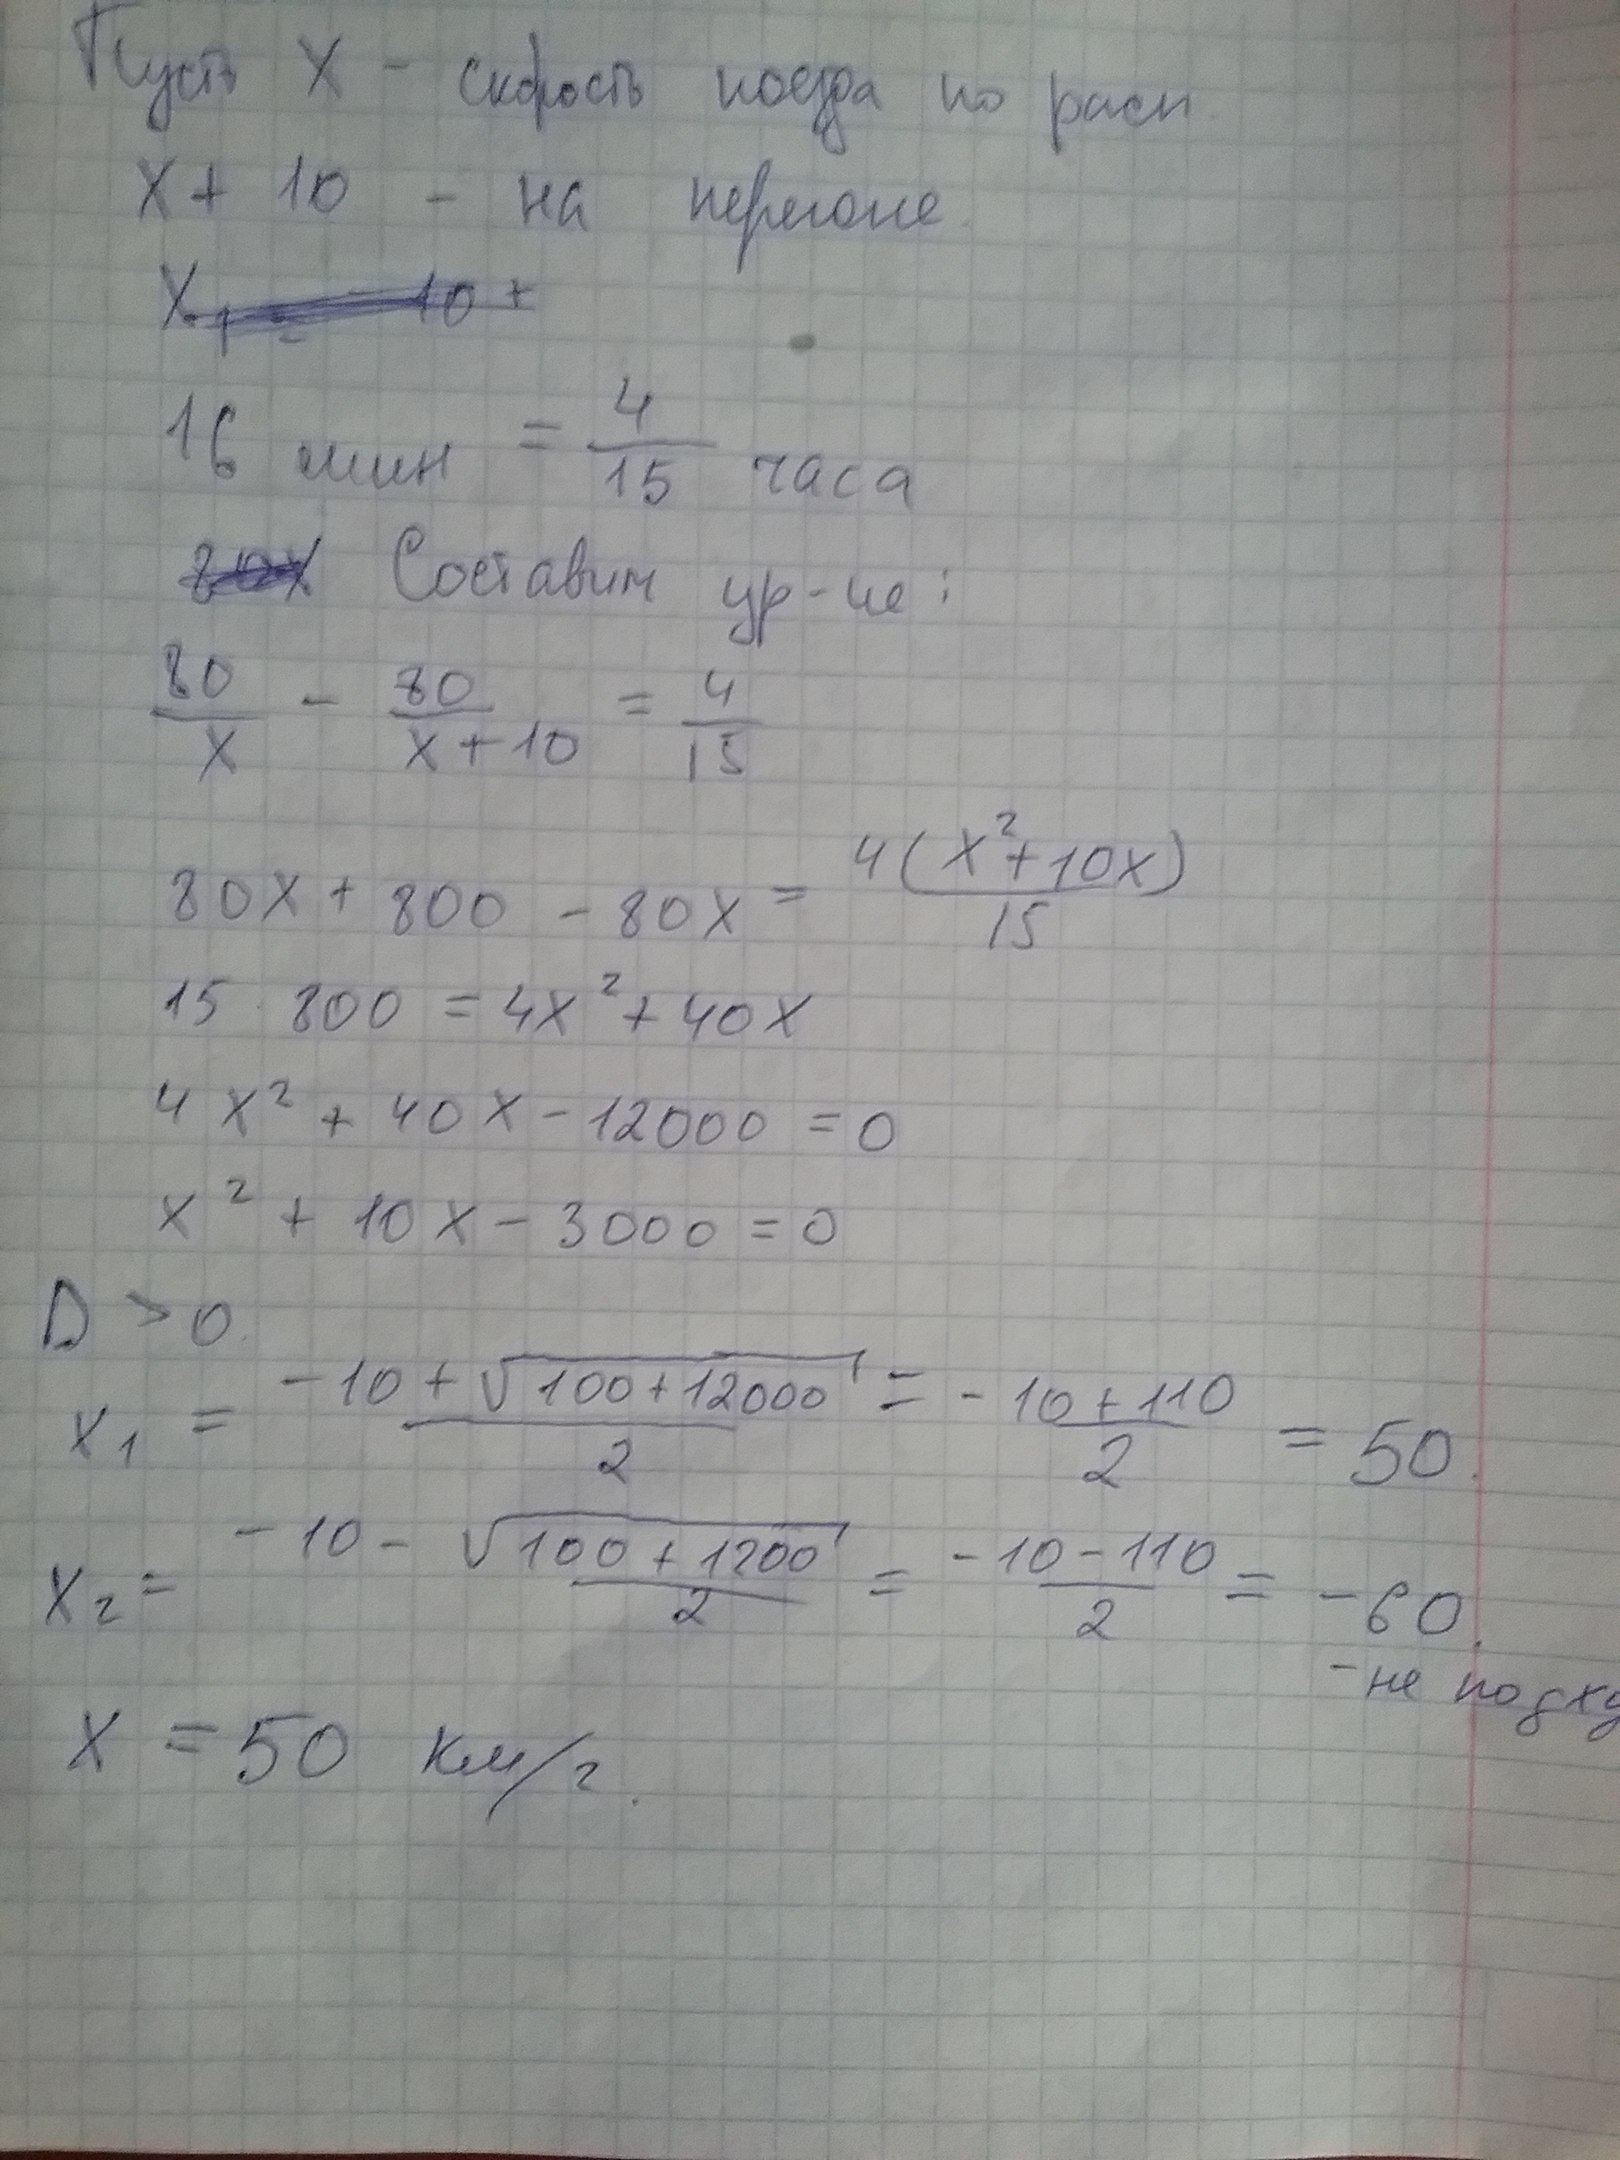 Пусть X - скорость поезда по расп.
X + 10 - на перегоне.
16 мин = 4/15 часа
Составим ур-ие:
80/X - 80/(X+10) = 4/15
80X + 800 - 80X = 4(X²+10X)/15
15 · 800 = 4X² + 40X
4X² + 40X - 12000 = 0
X² + 10X - 3000 = 0
D > 0.
X₁ = (-10 + √(100+12000))/2 = (-10+110)/2 = 50.
X₂ = (-10 - √(100+1200))/2 = (-10-110)/2 = -60.
- не подх
X = 50 км/г.